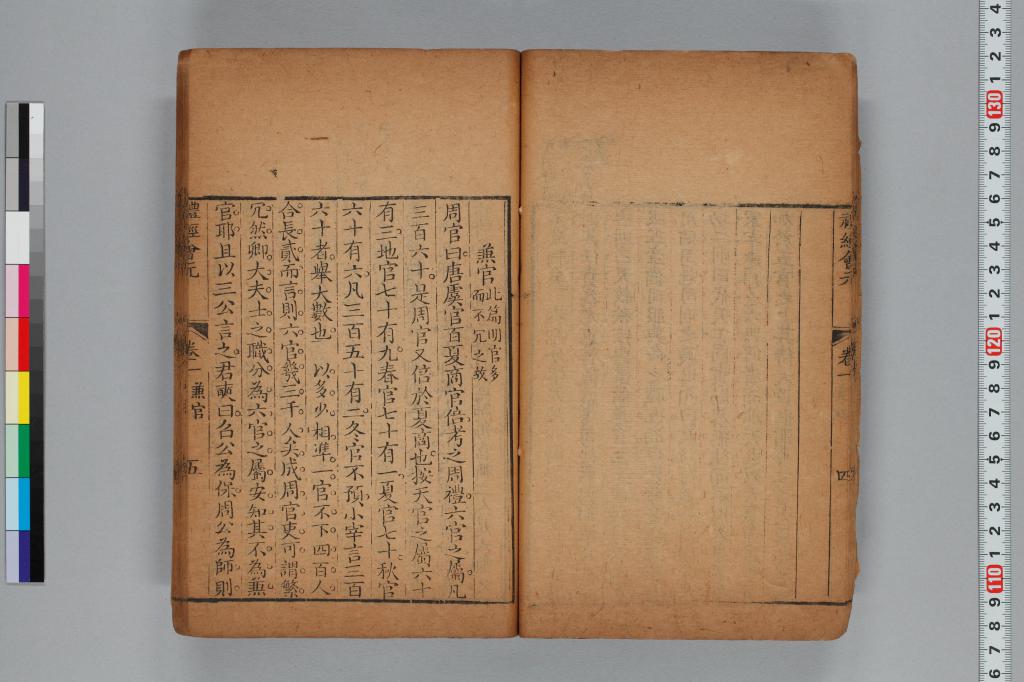 禮經會元
卷一
四
兼官此篇明官多
而不冗之故
周官曰唐虞官百夏商官倍考之周禮六官之屬凡
三百六十是周官又倍於夏商也按天官之屬六十
有三地官七十有九春官七十有一夏官七十秋官
六十有六凡三百五十有二冬官不預小宰言三百
六十者舉大數也 以多少相準一官不下四百人
合長貳而言則六官幾三千人矣成周官吏可謂繁
冗然卿大夫士之職分為六官之屬安知其不為兼
官耶且以三公言之君奭曰召公為保周公為師則
禮經會元
卷一
兼官
五
130
120
110